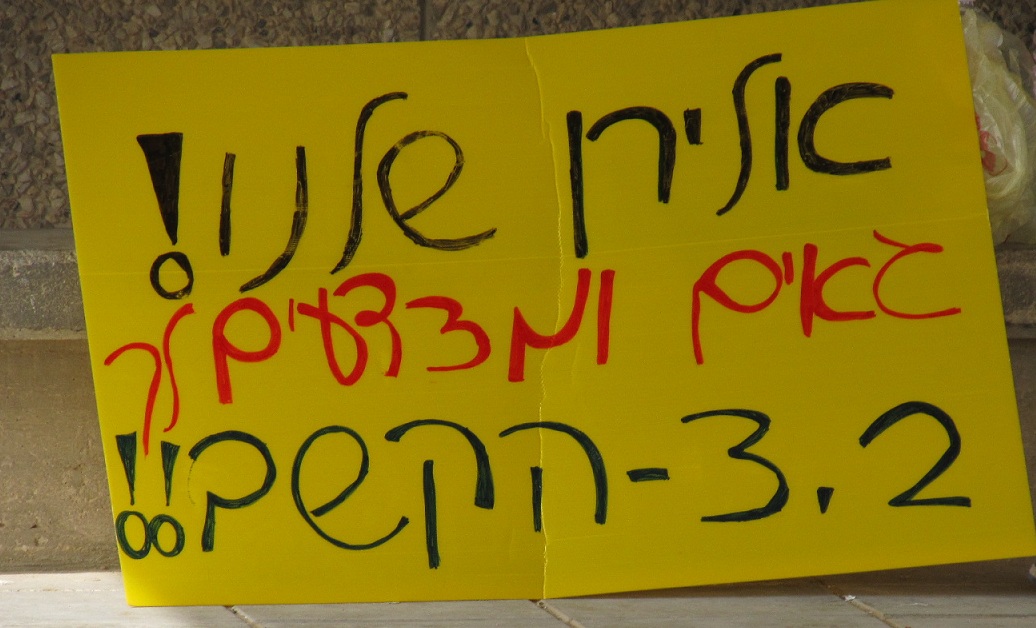 אלירן שלנו!
גאים ומצדעים לך
ב.צ-הקשם!!